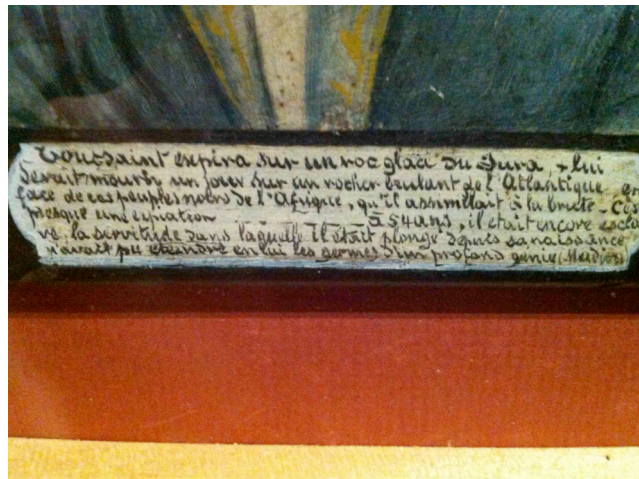 Toussaint expira sur un roc glacé du Jura, & lui
devait mourir un jour sur un rocher brulant de l'Atlantique en
face de ces peuples noirs de l'Afrique, qu'il assimilait à la brute - C'es
presque une expiation _ _ _ _ _ à 54 ans, il était encore escla
ve. la servitude dans laquelle il était plongé depuis sa naissance
n'avait pu éteindre en lui les germes d'un profond génie (Madiou)